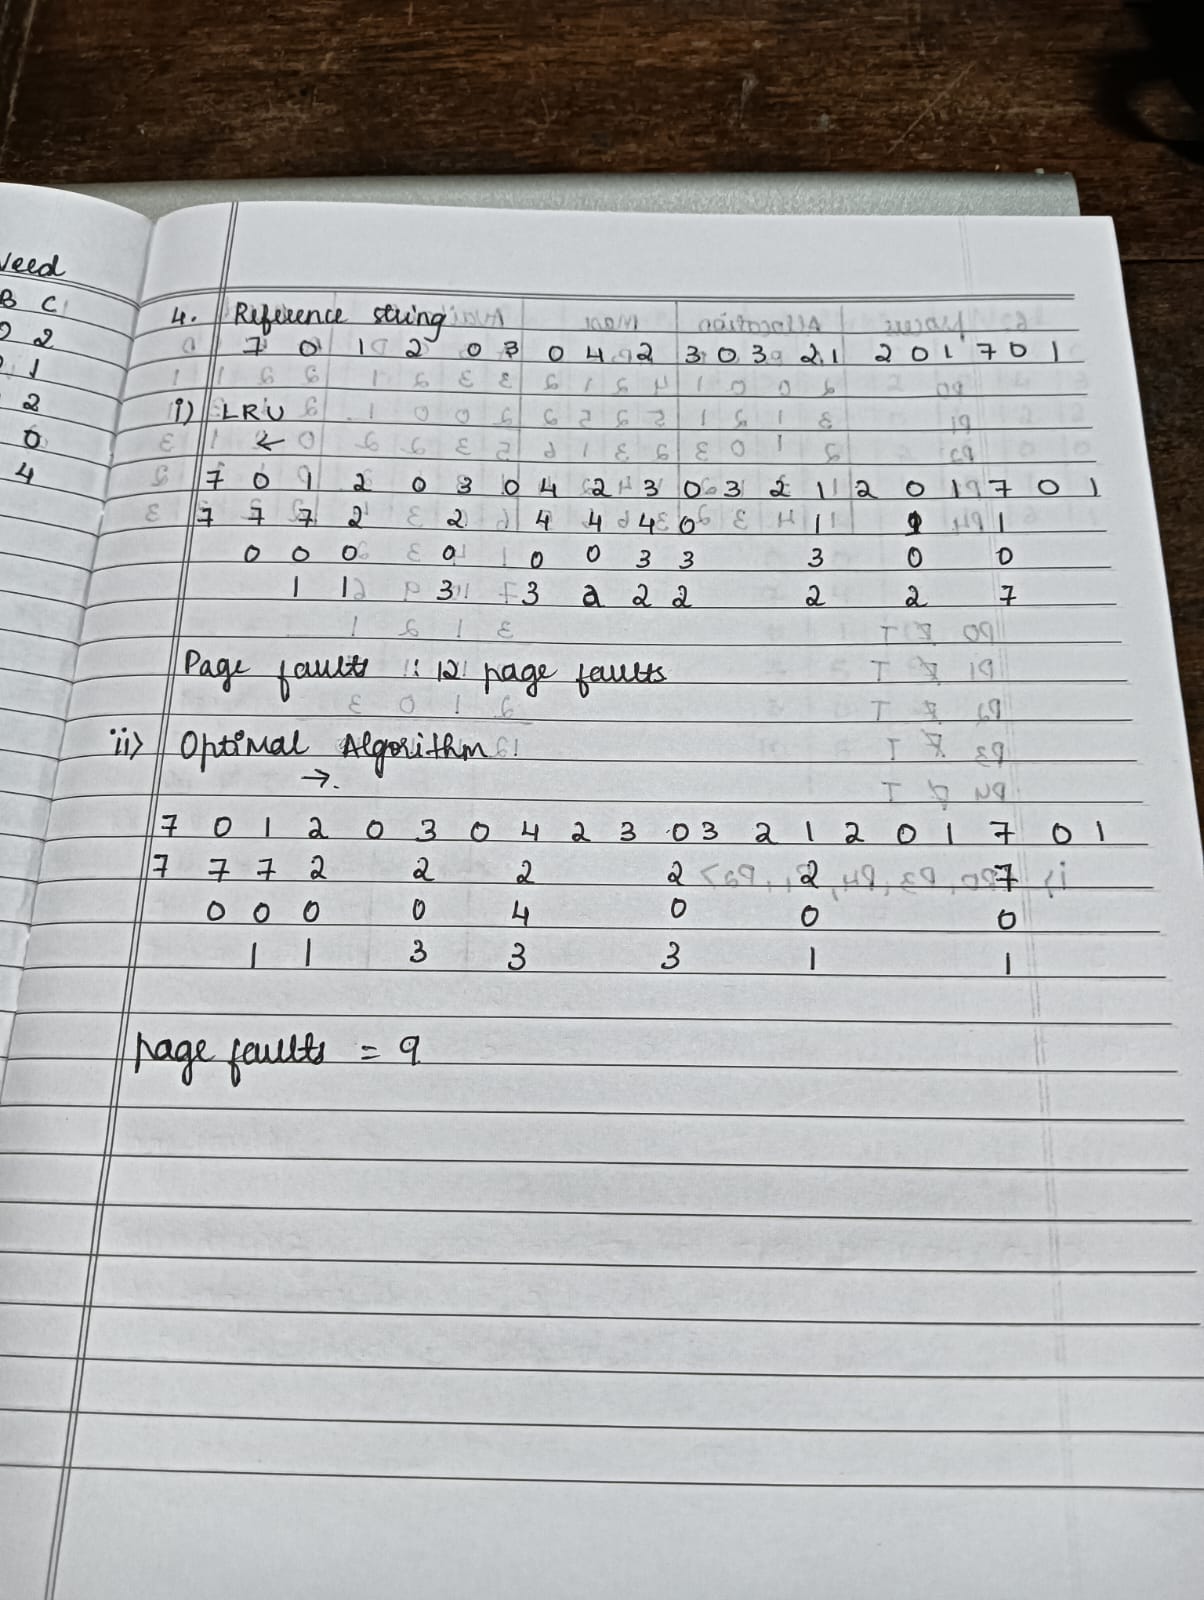 Need
B C
2 2
1
2
0
4
4. Reference string
7 0 1 2 0 3 0 4 2 3 0 3 2 1 2 0 1 7 0 1
i) LRU
←
7 0 1 2 0 3 0 4 2 3 0 3 2 1 2 0 1 7 0 1
7 7 7 2 2 4 4 4 0 1 1 1
0 0 0 0 0 0 3 3 3 0 0
1 1 3 3 2 2 2 2 2 7
Page faults : 12 page faults
ii) Optimal Algorithm
→.
7 0 1 2 0 3 0 4 2 3 0 3 2 1 2 0 1 7 0 1
7 7 7 2 2 2 2 2 7
0 0 0 0 4 0 0 0
1 1 3 3 3 1 1
page faults = 9